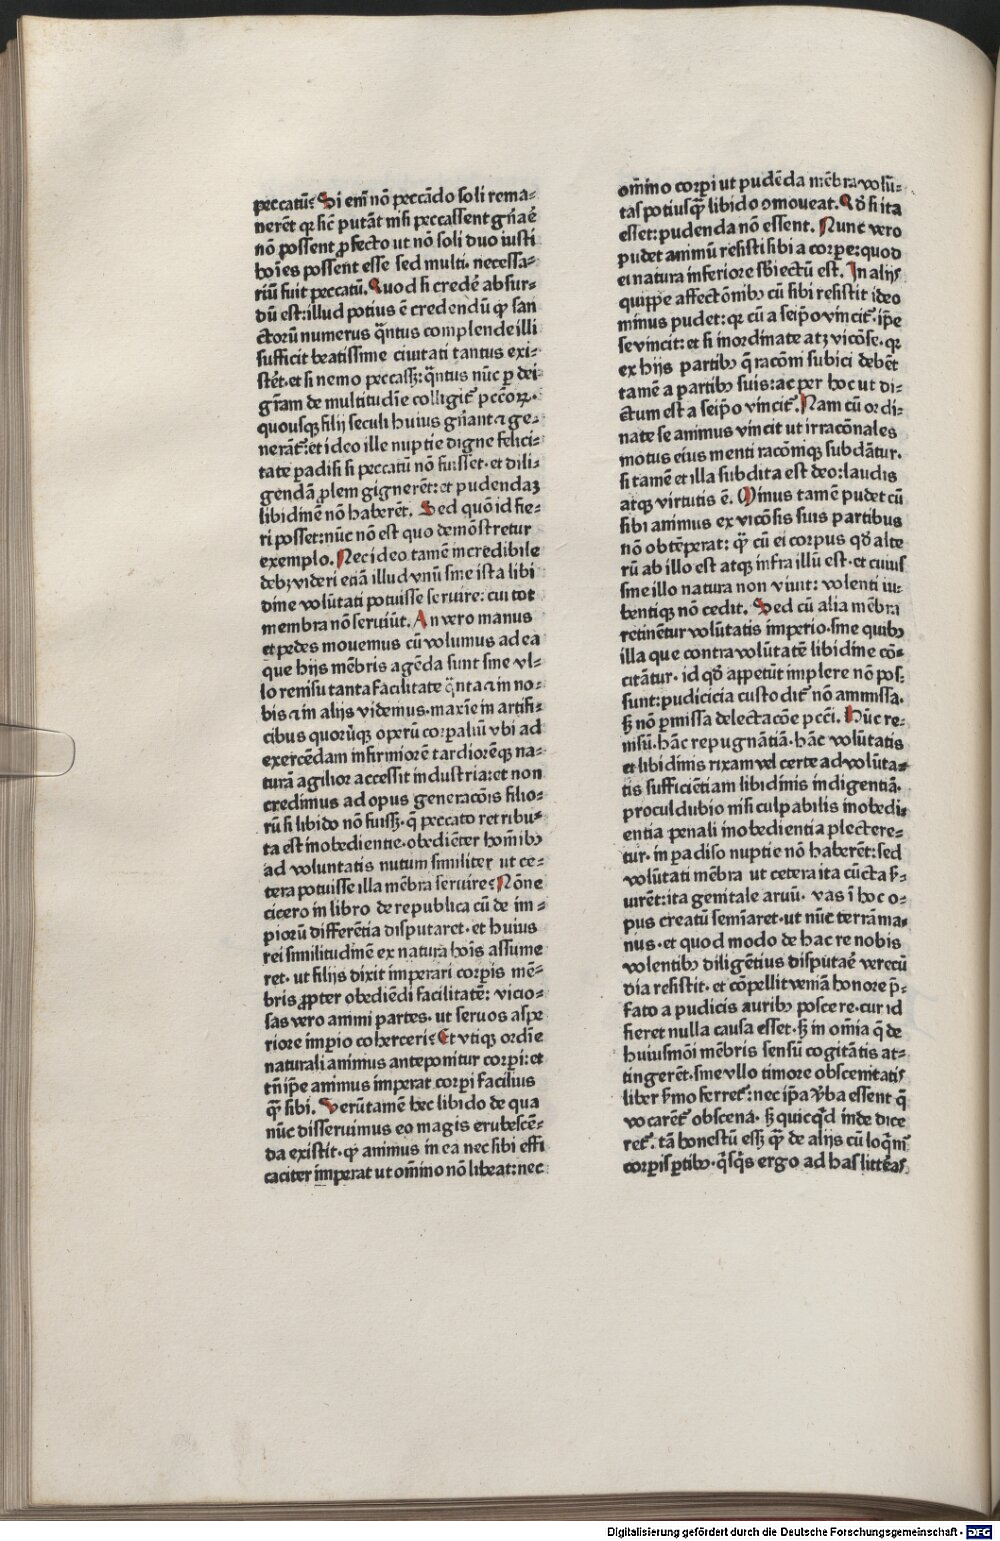 peccatū? Si em̄ nō peccādo soli rema⸗
nerēt qr sic̄ putāt nisi peccassent gn̄aē
nō possent ꝓfecto ut nō soli duo iusti
hoīes possent esse sed multi. necessa⸗
riū fuit peccatū. Quod si credē absur⸗
dū est: illud potius ē credendū ꝙ san
ctorū numerus q̄ntus complende illi
sufficit beatissime ciuitati tantus exi⸗
stēt. et si nemo peccassꝫ: q̄ntus nūc p dei
gr̄am de multitudīe colligit᷑ pctō𝐫ꝝ.
quousqꝫ filij seculi huius gn̄ant ⁊ ge⸗
nerāt᷑: et ideo ille nuptie digne felici⸗
tate padisi si peccatū nō fuisset. et dili⸗
gendā ꝓlem gignerēt: et pudendaꝫ
libidinē nō haberēt. Sed quō id fie⸗
ri posset: nūc nō est quo demōstretur
exemplo. Nec ideo tamē incredibile
debꝫ videri etiā illud vnū sine ista libi
dine volūtati potuisse seruire: cui tot
membra nō seruiūt. An vero manus
et pedes mouemus cū volumus ad ea
que hijs mēbris agēda sunt sine vl⸗
lo renisu tanta facilitate q̄nta ⁊ in no⸗
bis ⁊ in alijs videmus. maxīe in artifi⸗
cibus quorūqꝫ operū corpaliū vbi ad
exercēdam infirmiorē tardiorēqꝫ na⸗
turā agilior accessit industria: et non
credimus ad opus generacōis filio⸗
rū si libido nō fuissꝫ. q̄ peccato retribu⸗
ta est inobedientie. obediēter homībꝫ
ad voluntatis nutum similiter ut ce⸗
tera potuisse illa mēbra seruire? Nōne
cicero in libro de republica cū de im⸗
piorū differētia disputaret. et huius
rei similitudinē ex natura hoīs assume
ret. ut filijs dixit imperari corpis mē⸗
bris ꝓpter obediēdi facilitatē: vicio⸗
sas vero animi partes. ut seruos aspe
riore impio coherceri? Et vtiqꝫ ordīe
naturali animus anteponitur corpi: et
tn̄ ip̄e animus imperat corpi facilius
ꝙ̄ sibi. Verūtamē hec libido de qua
nūc disseruimus eo magis erubescē⸗
da existit. ꝙ animus in ea nec sibi effi
caciter imperat ut om̄ino nō libeat: nec
om̄ino corpi ut pudēda mēbra volū⸗
tas potiusꝙ̄ libido ↄmoueat. Qđ si ita
esset: pudenda nō essent. Nunc vero
pudet animū resisti sibi a corpe: quod
ei natura inferiore sb̄iectū est. In alijs
quippe affectōnibꝫ cū sibi resistit ideo
minus pudet: qr cū a seip̄o vincit᷑. ip̄e
se vincit: et si inordinate atqꝫ vicōse. qr
ex hijs partibꝫ q̄ racōni subici debēt
tamē a partibꝫ suis: ac per hoc ut di⸗
ctum est a seip̄o vincit᷑. Nam cū ordi⸗
nate se animus vincit ut irracōnales
motus eius menti racōniqꝫ subdātur.
si tamē et illa subdita est deo: laudis
atqꝫ virtutis ē. Minus tamē pudet cū
sibi animus ex vicōsis suis partibus
nō obtēperat: ꝙ̄ cū ei corpus qđ alte
rū ab illo est atqꝫ infra illū est. et cuius
sine illo natura non viuit: volenti iu⸗
bentiqꝫ nō cedit. Sed cū alia mēbra
retinētur volūtatis imperio. sine quibꝫ
illa que contra volūtatē libidine cō⸗
citātur. id qđ appetūt implere nō pos⸗
sunt: pudicicia custodit᷑ nō ammissa.
sꝫ nō pmissa delectacōe pcc̄i. Hūc re⸗
nisū. hāc repugnātiā. hāc volūtatis
et libidinis rixam vel certe ad volūta⸗
tis sufficiētiam libidinis indigentiā.
procul dubio nisi culpabilis inobedi⸗
entia penali inobedientia plectere⸗
tur. in padiso nuptie nō haberēt: sed
volūtati mēbra ut cetera ita cūcta s̄⸗
uirēt: ita genitale aruū. vas ī hoc o⸗
pus creatū semīaret. ut nūc terrā ma⸗
nus. et quod modo de hac re nobis
volentibꝫ diligētius disputaē verecū
dia resistit. et cōpellit veniā honore p̄⸗
fato a pudicis auribꝫ poscere. cur id
fieret nulla causa esset. sꝫ in om̄ia q̄ de
huiusmōi mēbris sensū cogitātis at⸗
tingerēt. sine vllo timore obscenitatis
liber s̄mo ferret᷑: nec ip̄a v̄ba essent q̄
vocarēt᷑ obscena. sꝫ quicq̄d inde dice
ret᷑. tā honestū essꝫ ꝙ̄ de alijs cū loq̄m᷑
corpis ptibꝫ. q̄sq̄s ergo ad has litt̄as
Digitalisierung gefördert durch die Deutsche Forschungsgemeinschaft - DFG